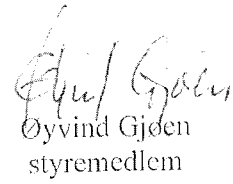 Øyvind Gjøen
Øyvind Gjøen
styremedlem